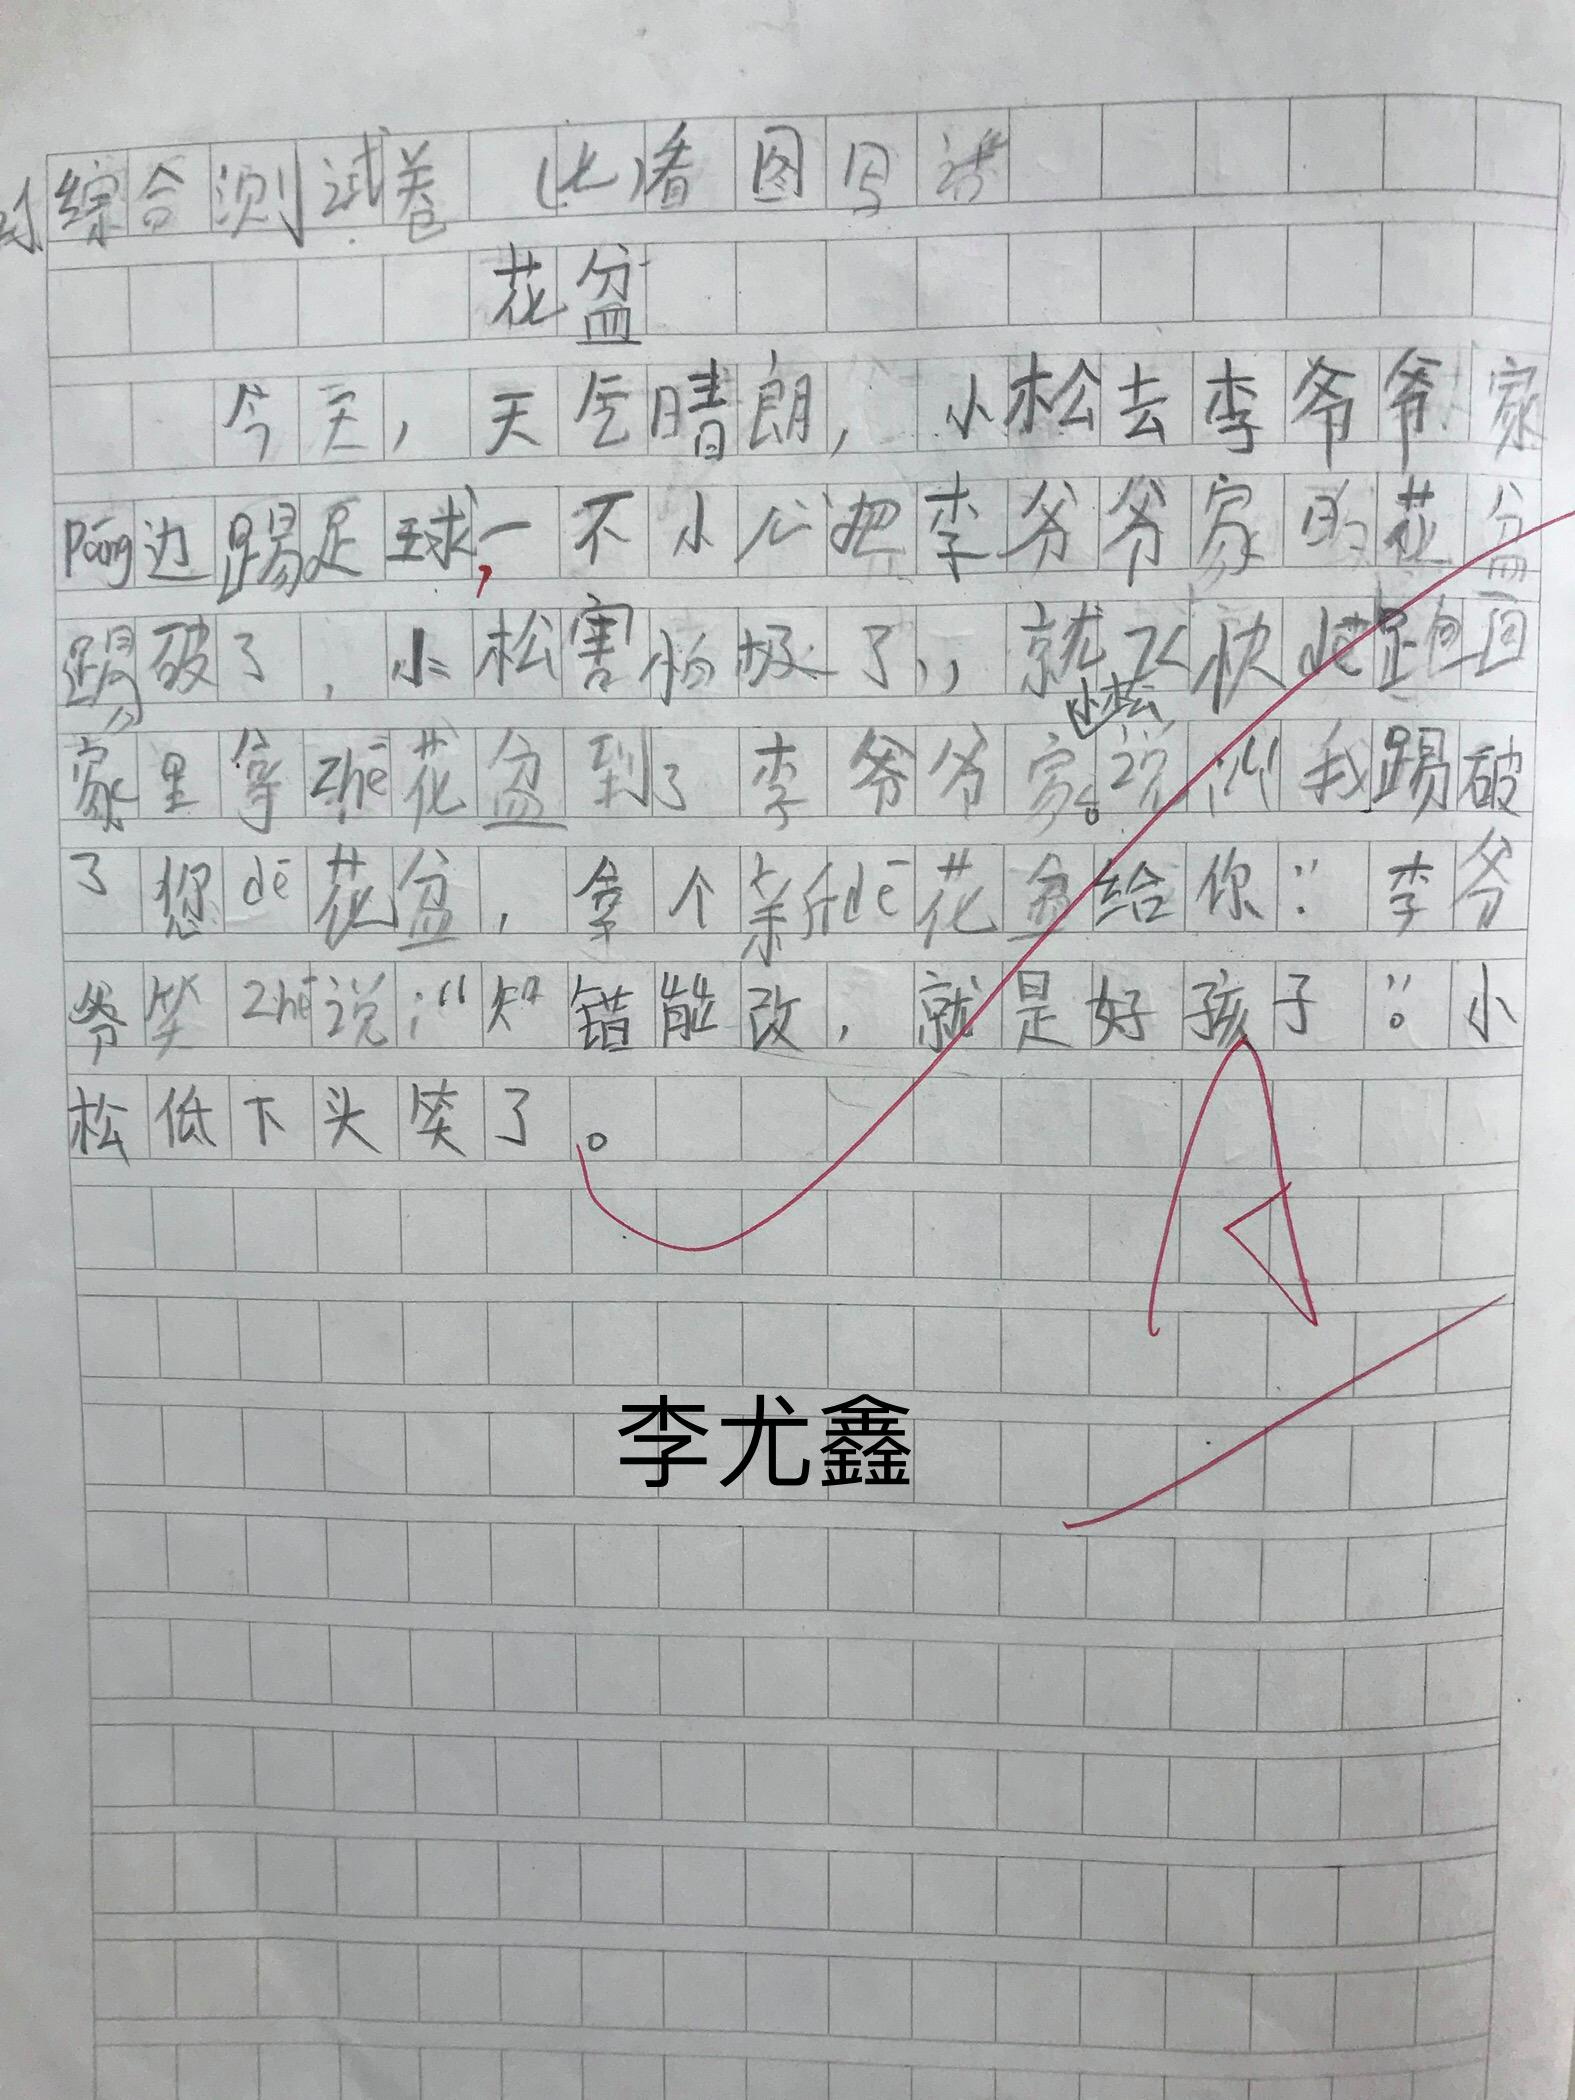 综合测试卷 (七)看图写话
花盆
今天,天气晴朗,小松去李爷爷家
páng边踢足球,一不小心把李爷爷家的花盆
踢破了,小松害怕极了,,就飞快dē跑回
家里拿zhē花盆到了李爷爷家。小松说:“我踢破
了您dē花盆,拿个新dē花盆给你:”李爷
爷笑zhē说:“知错能改,就是好孩子。”小
松低下头笑了。
A
李尤鑫